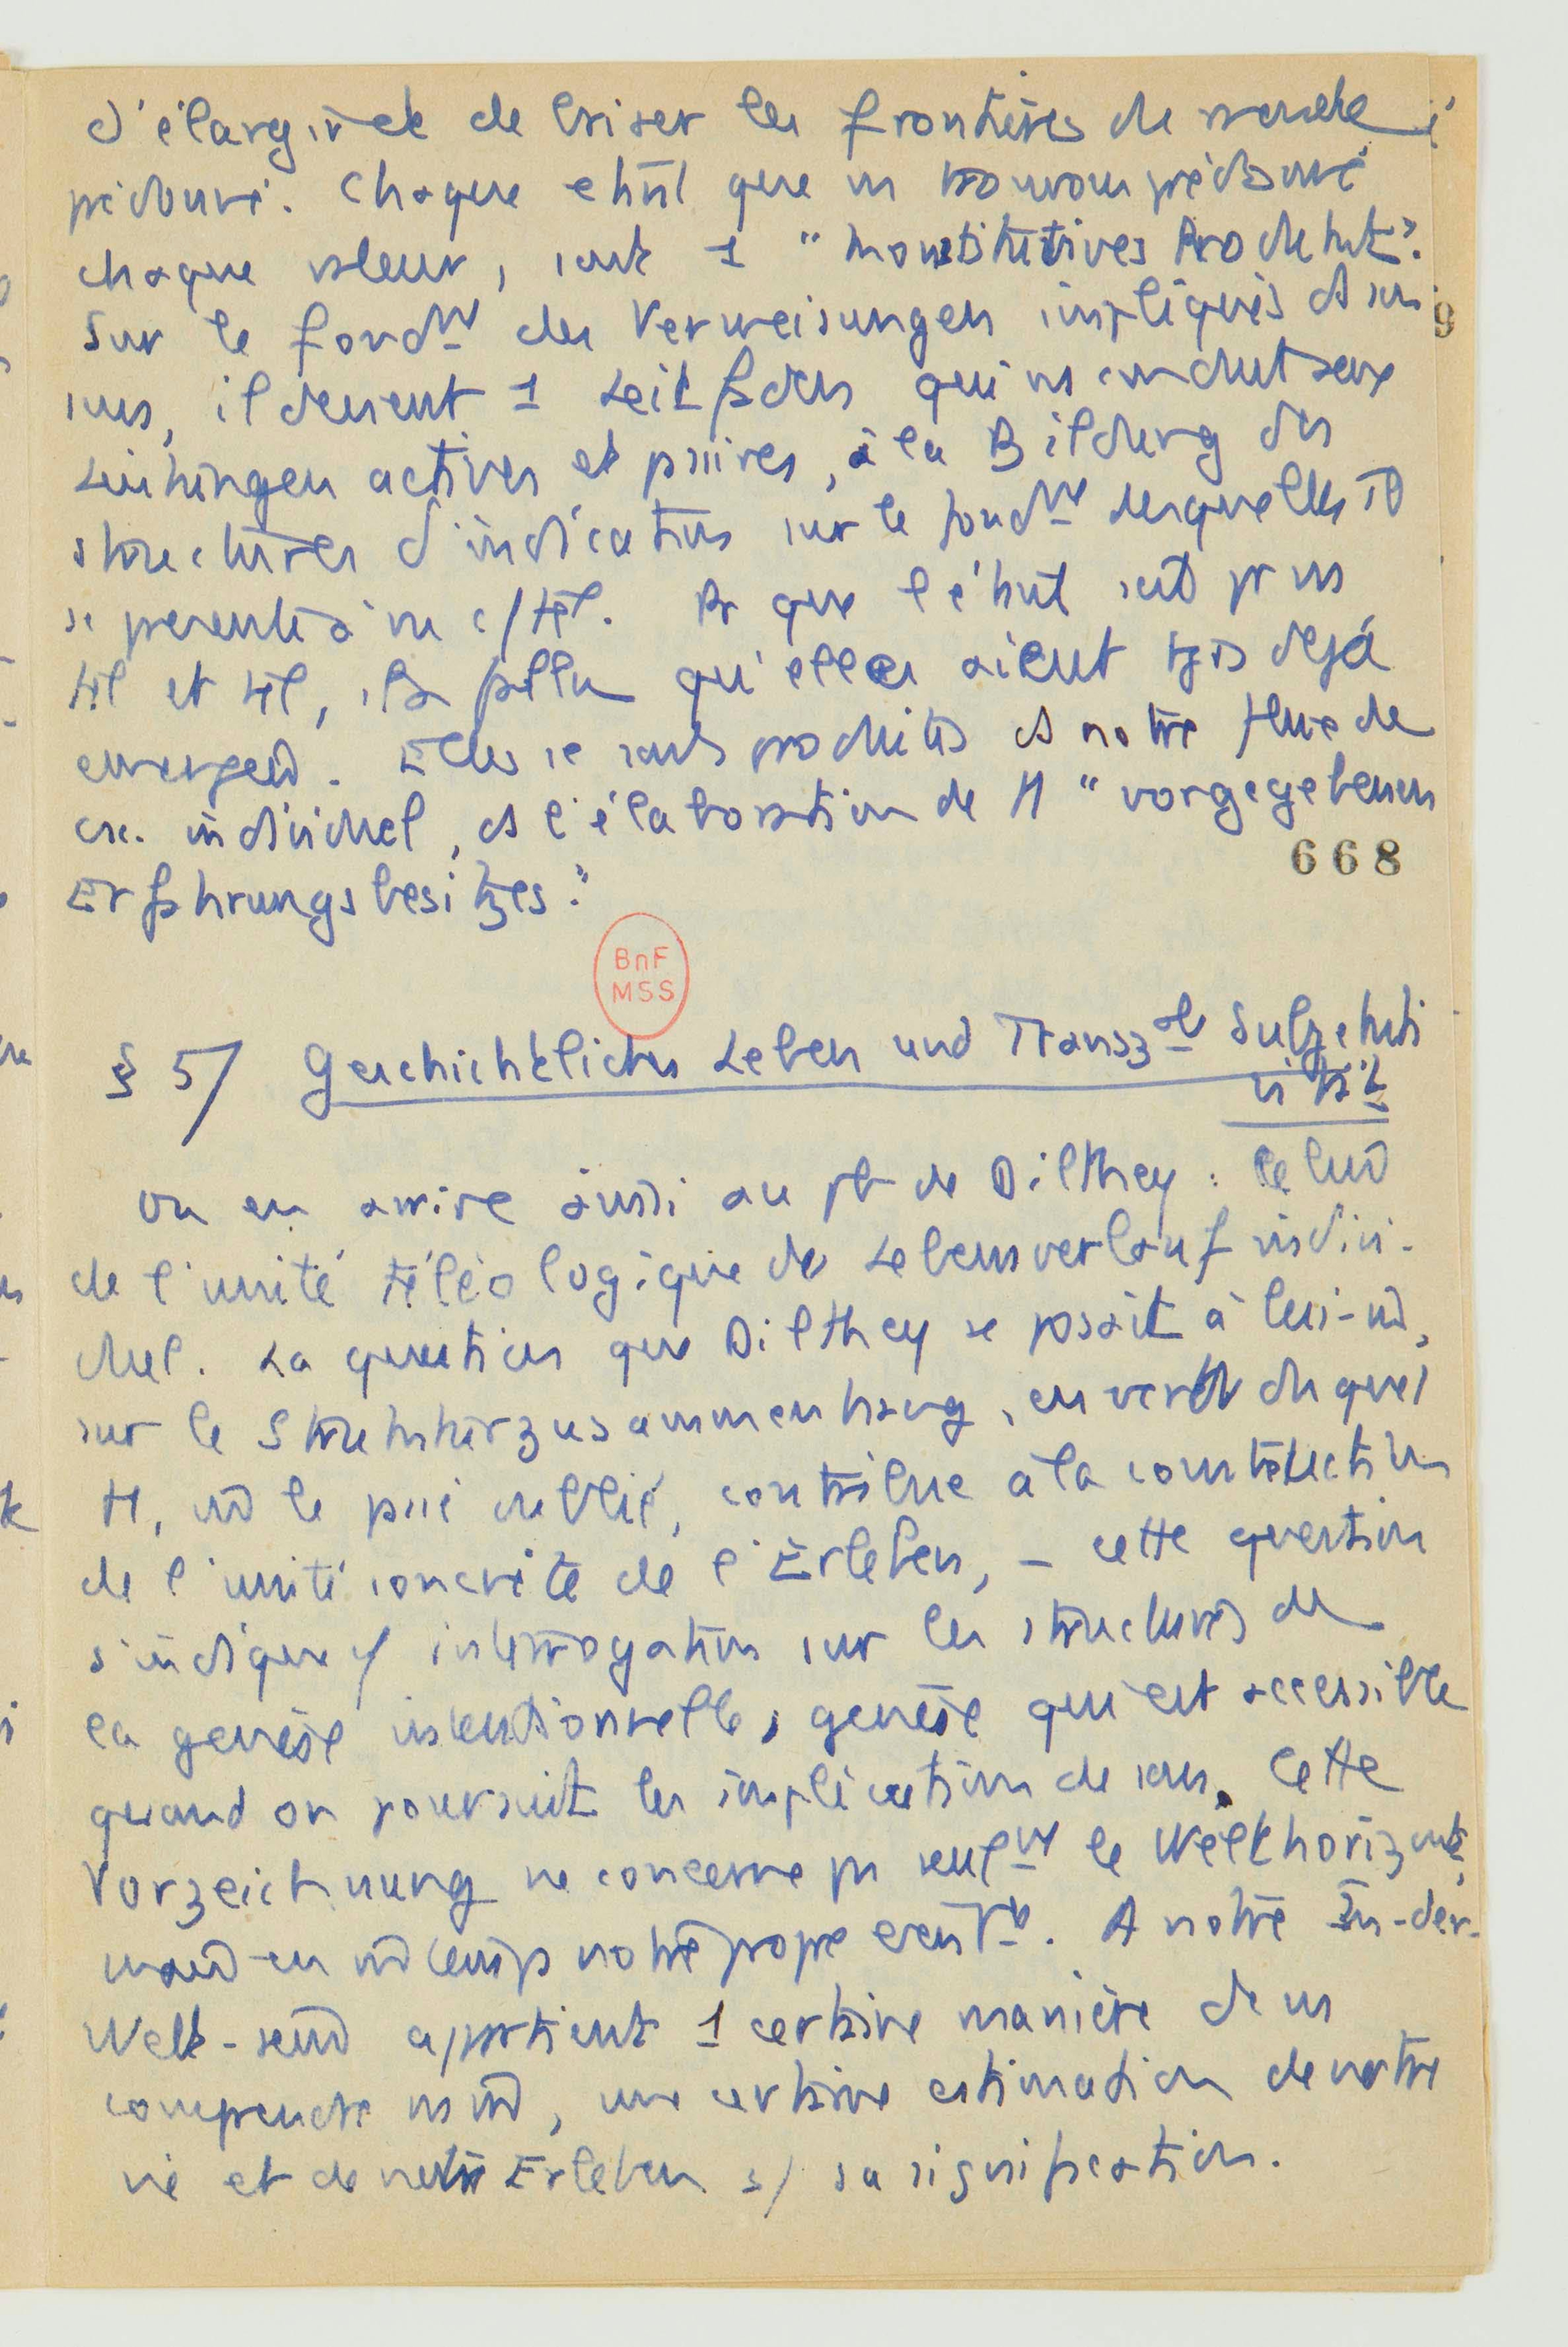 d'élargir et de briser les frontières de
prédonné. Chaque étant que ns trouvons prédonné
chaque valeur, sont 1 "konstitutives Produkt".
Sur le fondnt des Verweisungen impliqués ds son
sens, il devient 1 Leitfaden qui ns conduit aux
Leistungen actives et passives, à la Bildung des
structures d'indication sur le fondnt desquelles il
se présente à ns c/ tel. Pr que l'étant soit pr ns
tel et tel, il a fallu qu'elles aient tjs déjà
émergées. Elles se sont produites ds notre
individuel, ds l'élaboration de "vorgegebenen
Erfahrungsbesitzes".
668
BnF
MSS
§ 5/ Geschichtliches Leben und Transzal Subjekti
vität
On en arrive ainsi au pb de Dilthey : celui
de l'unité téléologique du Lebensverlauf indivi-
duel. La question que Dilthey se posait à lui-m̂,
sur le Strukturzusammenhang, en vertu duquel
tt, m̂ le passé oublié, contribue à la construction
de l'unité concrète de l'Erleben, – cette question
s'indique c/ interrogation sur les structures de
la genèse intentionnelle, genèse qui est accessible
quand on poursuit les implications de sens. Cette
Vorzeichnung ne concerne pas seulnt le Welthorizont,
mais en m̂ temps notre propre . A notre In-der-
Welt-sein appartient 1 certaine manière de ns
comprendre ns m̂, une certaine estimation de notre
vie et de notre Erleben s/ sa signification.